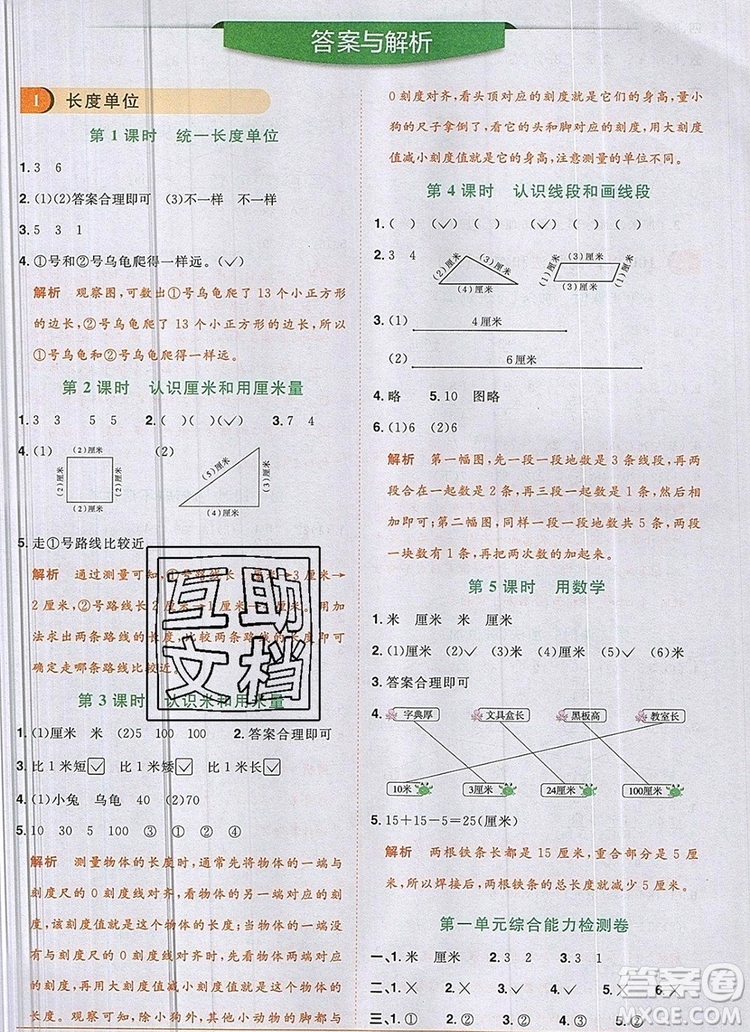 答案与解析
1 长度单位
第1课时 统一长度单位
1.3 6
2.(1)(2)答案合理即可 (3)不一样 不一样
3.5 3 1
4.①号和②号乌龟爬得一样远。(✓)
解析 观察图,可数出①号乌龟爬了13个小正方形
的边长,②号乌龟爬了13个小正方形的边长,所以
①号乌龟和②号乌龟爬得一样远。
第2课时 认识厘米和用厘米量
1.3 3 5 5 2.( )( )(✓) 3.7 4
4.(1) (2)厘米 (2)厘米 (2)厘米 (2)厘米 (2) (5)厘米 (3)厘米 (4)厘米
5.走①号路线比较近
解析 通过测量可知,①号路线长
2厘米;②号路线长2厘米→
法求出两条路线的长度,比较两条路线的长度即可
确定走哪条路线比较近。
第3课时 认识米和用米量
1.(1)厘米 米 (2)5 100 100 2.答案合理即可
3.比1米短☑ 比1米长☑ 比1米长☑
4.(1)小兔 乌龟 40 (2)70
5.10 30 90 ③ ① ② ④
解析 测量物体的长度时,通常先将物体的一端与刻
度尺的0刻度线对齐,再看物体的另一端对着刻度几,
该刻度值就是这个物体的长度;当物体的一端没有与
0刻度线对齐时,用大刻度值减小刻度值就是该物体
的长度。测量小动物的身高时,大熊的脚没有与0刻
度线对齐,其他小动物的脚都与
0刻度对齐,看头顶对应的刻度就是它们的身高,量小
狗的尺子拿倒了,看它的头和脚对应的刻度,用大刻度
值减小刻度值就是它的身高,注意测量的单位不同。
第4课时 认识线段和画线段
1.( ) ( ) (✓) (✓) ( ) (✓)
2.3 4 (2)厘米 (3)厘米 (4)厘米 (3)厘米 (1)厘米 (1)厘米 (3)厘米
3.(1) 4厘米
(2) 6厘米
4.略 5.10 图略
6.(1)6 (2)6
解析 第一幅图,先一段一段地数是3条线段,再两
段合在一起数是2条,再三段一起数是1条,最后相
加即可;第二幅图,同样一段一段地数有5条,两段
一块数有1条,再把两次的加起来。
第5课时 用数学
1.米 厘米 米 厘米
2.(1)厘米 (2)厘米 (3)✓ (4)✓
3.答案合理即可
4. 字典厚 文具盒长 黑板高 教室长
10米 3厘米 24厘米 100厘米
5.15+15-5=25(厘米)
解析 两根铁条长都是15厘米,重叠部分是5厘
米,所以焊接后,两根铁条的总长度就会减少5厘米。
第一单元综合能力检测卷
一、1.米 厘米 米 2.3 3.3 1
二、1.✓ 2.✓ 3.✓ 4.✓ 5.✕ 6.✕
三、1.② 2.② 3.① 4.② 5.②
互助
文档
答案圈
MXQE.COM